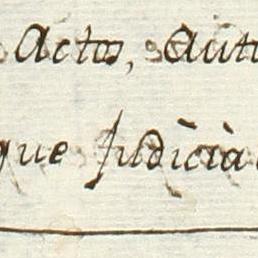 Actos, Auto
que Judicia